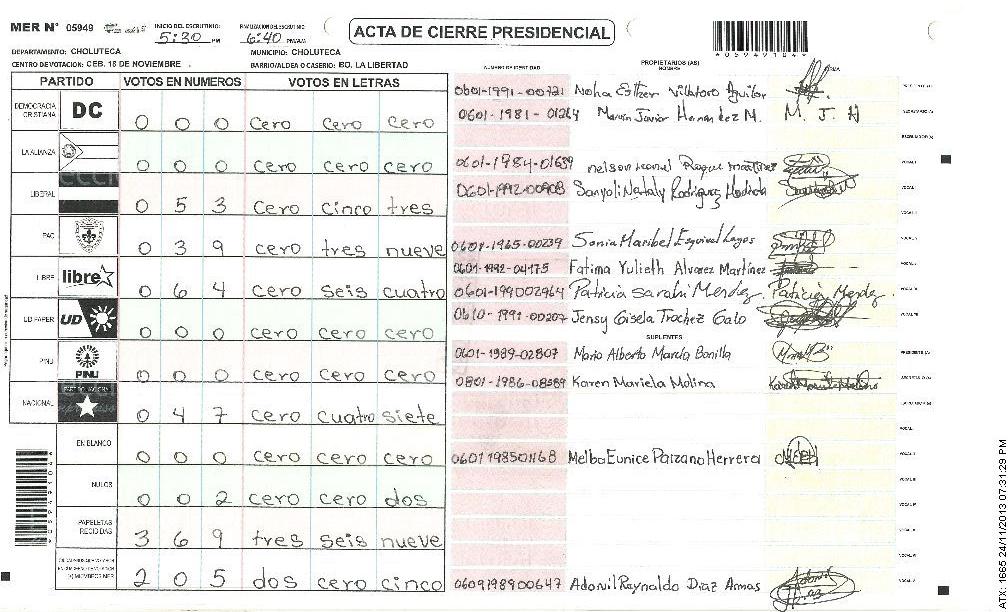 MER N° 05949
INICIO DEL ESCRUTINIO: 5:30 PM
FINALIZACION DEL ESCRUTINIO: 6:40 PM/AM
ACTA DE CIERRE PRESIDENCIAL
DEPARTAMENTO: CHOLUTECA
MUNICIPIO: CHOLUTECA
CENTRO DE VOTACION: CEB. 18 DE NOVIEMBRE
BARRIO/ALDEA O CASERIO: BO. LA LIBERTAD
PARTIDO VOTOS EN NUMEROS VOTOS EN LETRAS
NUMERO DE IDENTIDAD
PROPIETARIOS (AS)
NOMBRE
DEMOCRACIA CRISTIANA DC 0 0 0 cero cero cero
LA ALIANZA 0 0 0 cero cero cero
LIBERAL 0 5 3 cero cinco tres
PAC 0 3 9 cero tres nueve
LIBRE libre 0 6 4 cero seis cuatro
UD FAPER UD 0 0 0 cero cero cero
PINU PINU 0 0 0 cero cero cero
NACIONAL 0 4 7 cero cuatro siete
EN BLANCO 0 0 0 cero cero cero
NULOS 0 0 2 cero cero dos
PAPELETAS RECIBIDAS 3 6 9 tres seis nueve
2 0 5 dos cero cinco
0601-1991-00721 Noha Esther Villatoro Aguilar
0601-1981-01264 Marvin Javier Hernandez M. M. J. H
0601-1984-01639 nelson Leonel Roque martinez
0601-1992-00908 Sanyoli Nataly Rodriguez
0601-1965-00239 Sonia Maribel Esquivel Lagos
0601-1992-04175 Fatima Yulieth Alvarez Martínez
0601-199002964 Patricia Sarahi Mendez. Patricia Mendez
0610-1991-00207 Jensy Gisela Trochez Galo
SUPLENTES
0601-1989-02807 Mario Alberto Bonilla
0801-1986-08589 Karen Mariela Molina
0601198501168 Melba Eunice Herrera
0609198900647 Reynaldo Diaz Armas
ATX: 1665 24/11/2013 07:31:29 PM